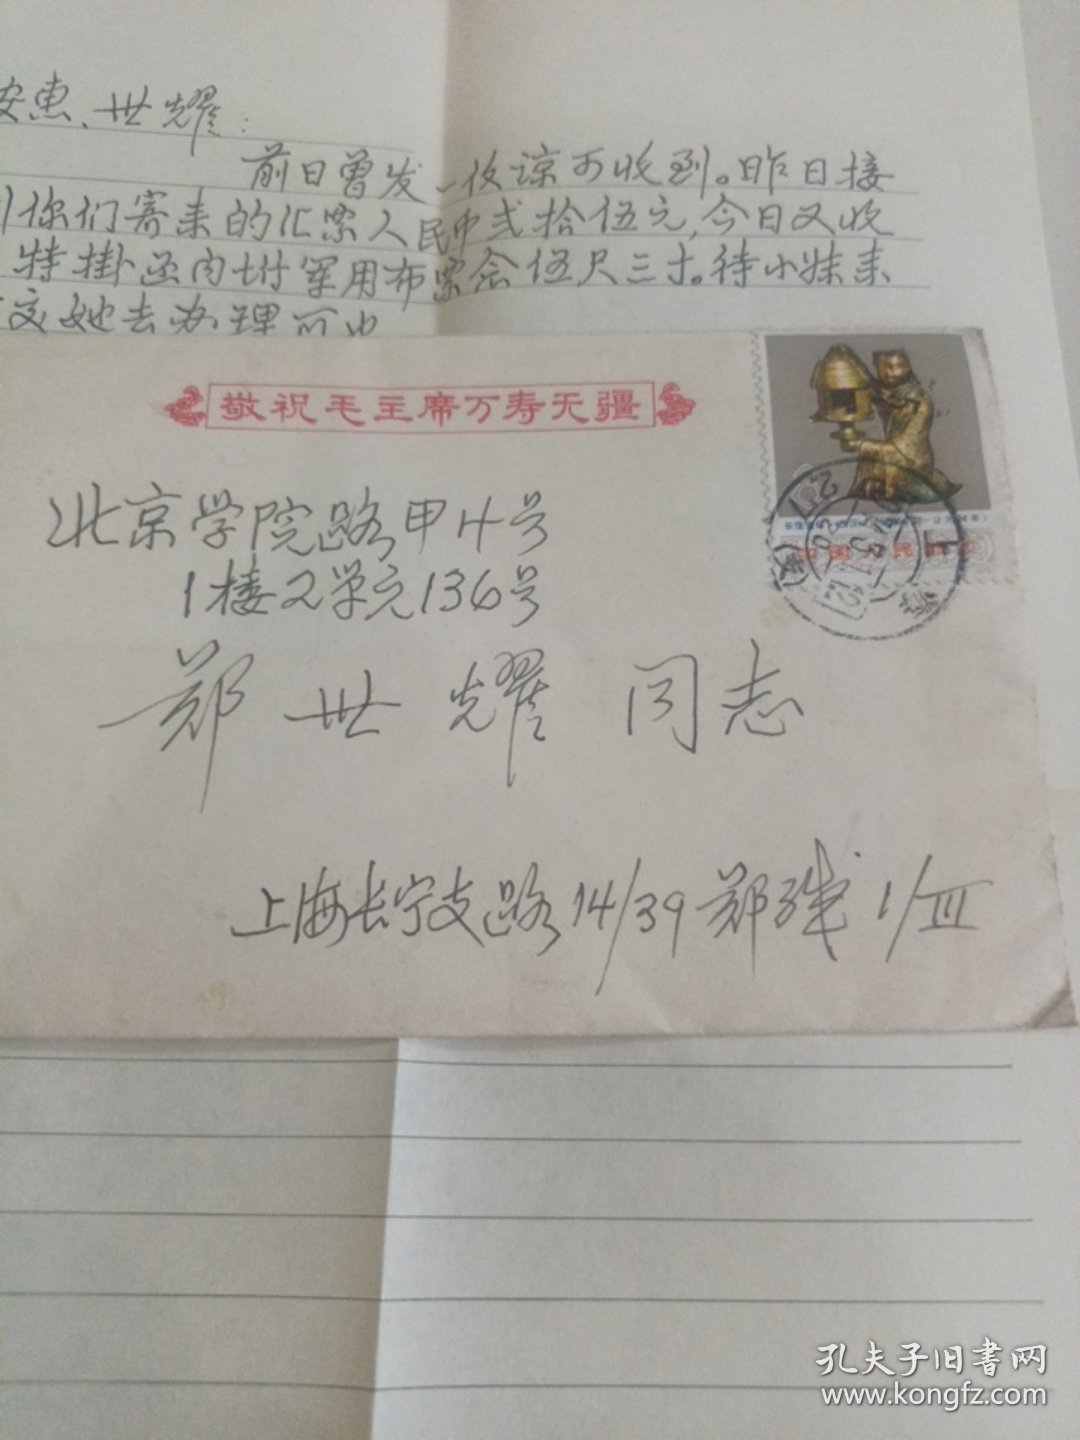 安惠、世耀：
前日曾发一收谅可收到。昨日接
到你们寄来的汇票人民币弍拾伍元，今日又收
特挂函内附军用布票念伍尺三寸。待小妹来
交她去办理可也
敬祝毛主席万寿无疆
北京学院路甲4号
1楼2单元136号
郑世耀同志
上海长宁支路14/39郑缄 1/III
中国人民邮政
上海
孔夫子旧书网
www.kongfz.com